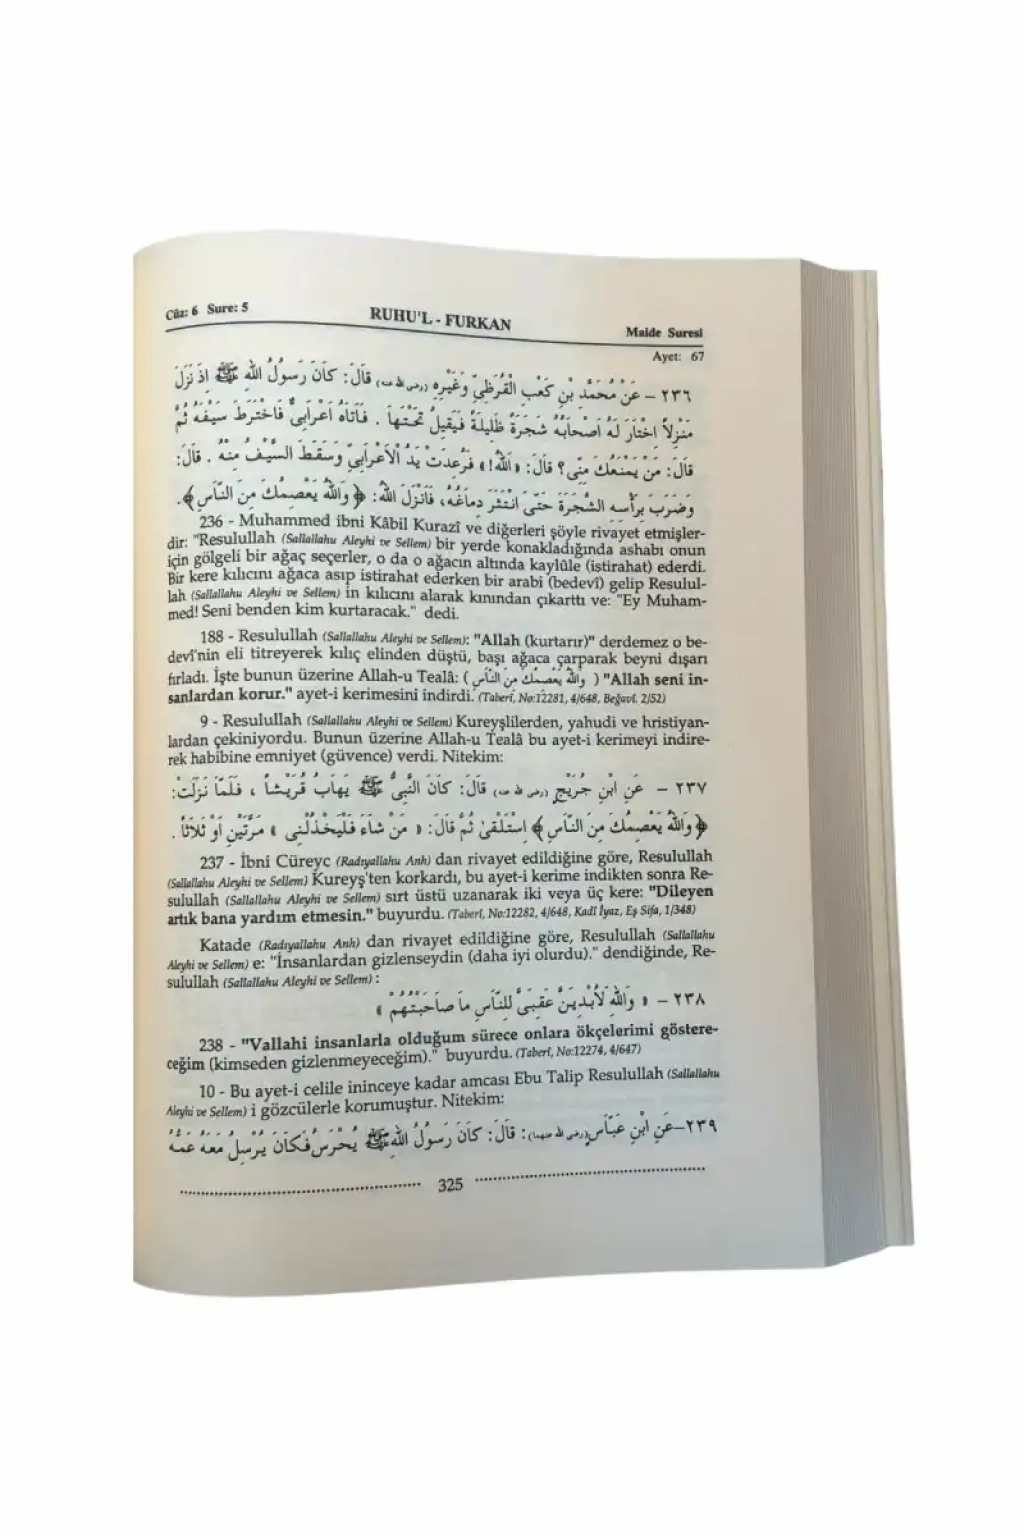 Cüz: 6 Sure: 5
RUHU'L - FURKAN
Maide Suresi
Ayet: 67
٢٣٦ – عَنْ مُحَمَّدِ بْنِ كَعْبٍ الْقُرَظِيِّ وَغَيْرِهِ (رضى الله عنه) قَالَ: كَانَ رَسُولُ اللهِ ﷺ إِذَا نَزَلَ
مَنْزِلاً اخْتَارَ لَهُ أَصْحَابُهُ شَجَرَةً ظَلِيلَةً فَيَقِيلُ تَحْتَهَا . فَأَتَاهُ أَعْرَابِيٌّ فَاخْتَرَطَ سَيْفَهُ ثُمَّ
قَالَ: مَنْ يَمْنَعُكَ مِنِّى؟ قَالَ: «اَللهُ!» فَرُعِدَتْ يَدُ الْأَعْرَابِيِّ وَسَقَطَ السَّيْفُ مِنْهُ . قَالَ:
وَضَرَبَ بِرَأْسِهِ الشَّجَرَةَ حَتَّى انْتَثَرَ دِمَاغُهُ، فَأَنْزَلَ اللهُ: ﴿وَاللهُ يَعْصِمُكَ مِنَ النَّاسِ﴾.
236 - Muhammed ibni Kâbil Kurazî ve diğerleri şöyle rivayet etmişler-
dir: "Resulullah (Sallallahu Aleyhi ve Sellem) bir yerde konakladığında ashabı onun
için gölgeli bir ağaç seçerler, o da o ağacın altında kaylûle (istirahat) ederdi.
Bir kere kılıcını ağaca asıp istirahat ederken bir arabi (bedevî) gelip Resulul-
lah (Sallallahu Aleyhi ve Sellem) in kılıcını alarak kınından çıkarttı ve: "Ey Muham-
med! Seni benden kim kurtaracak." dedi.
188 - Resulullah (Sallallahu Aleyhi ve Sellem): "Allah (kurtarır)" derdemez o be-
devî'nin eli titreyerek kılıç elinden düştü, başı ağaca çarparak beyni dışarı
fırladı. İşte bunun üzerine Allah-u Tealâ: ( وَاللهُ يَعْصِمُكَ مِنَ النَّاسِ ) "Allah seni in-
sanlardan korur." ayet-i kerimesini indirdi. (Taberî, No:12281, 4/648, Beğavî. 2/52)
9 - Resulullah (Sallallahu Aleyhi ve Sellem) Kureyşlilerden, yahudi ve hristiyan-
lardan çekiniyordu. Bunun üzerine Allah-u Tealâ bu ayet-i kerimeyi indire-
rek habibine emniyet (güvence) verdi. Nitekim:
٢٣٧ – عَنِ ابْنِ جُرَيْجٍ (رضى الله عنه) قَالَ: كَانَ النَّبِيُّ ﷺ يَهَابُ قُرَيْشاً ، فَلَمَّا نَزَلَتْ:
﴿وَاللهُ يَعْصِمُكَ مِنَ النَّاسِ﴾ اِسْتَلْقَى ثُمَّ قَالَ: « مَنْ شَاءَ فَلْيَخْذُلْنِى » مَرَّتَيْنِ أَوْ ثَلَاثاً .
237 - İbni Cüreyc (Radıyallahu Anh) dan rivayet edildiğine göre, Resulullah
(Sallallahu Aleyhi ve Sellem) Kureyş'ten korkardı, bu ayet-i kerime indikten sonra Re-
sulullah (Sallallahu Aleyhi ve Sellem) sırt üstü uzanarak iki veya üç kere: "Dileyen
artık bana yardım etmesin." buyurdu. (Taberî, No:12282, 4/648, Kadî İyaz, Eş Sifa, 1/348)
Katade (Radıyallahu Anh) dan rivayet edildiğine göre, Resulullah (Sallallahu
Aleyhi ve Sellem) e: "İnsanlardan gizlenseydin (daha iyi olurdu)." dendiğinde, Re-
sulullah (Sallallahu Aleyhi ve Sellem) :
٢٣٨ – « وَاللهِ لَأُبْدِيَنَّ عَقِبَيَّ لِلنَّاسِ مَا صَاحَبْتُهُمْ »
238 - "Vallahi insanlarla olduğum sürece onlara ökçelerimi göstere-
ceğim (kimseden gizlenmeyeceğim)." buyurdu. (Taberî, No:12274, 4/647)
10 - Bu ayet-i celile ininceye kadar amcası Ebu Talip Resulullah (Sallallahu
Aleyhi ve Sellem) i gözcülerle korumuştur. Nitekim:
٢٣٩–عَنِ ابْنِ عَبَّاسٍ (رضى الله عنهما) : قَالَ: كَانَ رَسُولُ اللهِ ﷺ يُحْرَسُ فَكَانَ يُرْسِلُ مَعَهُ عَمُّهُ
325